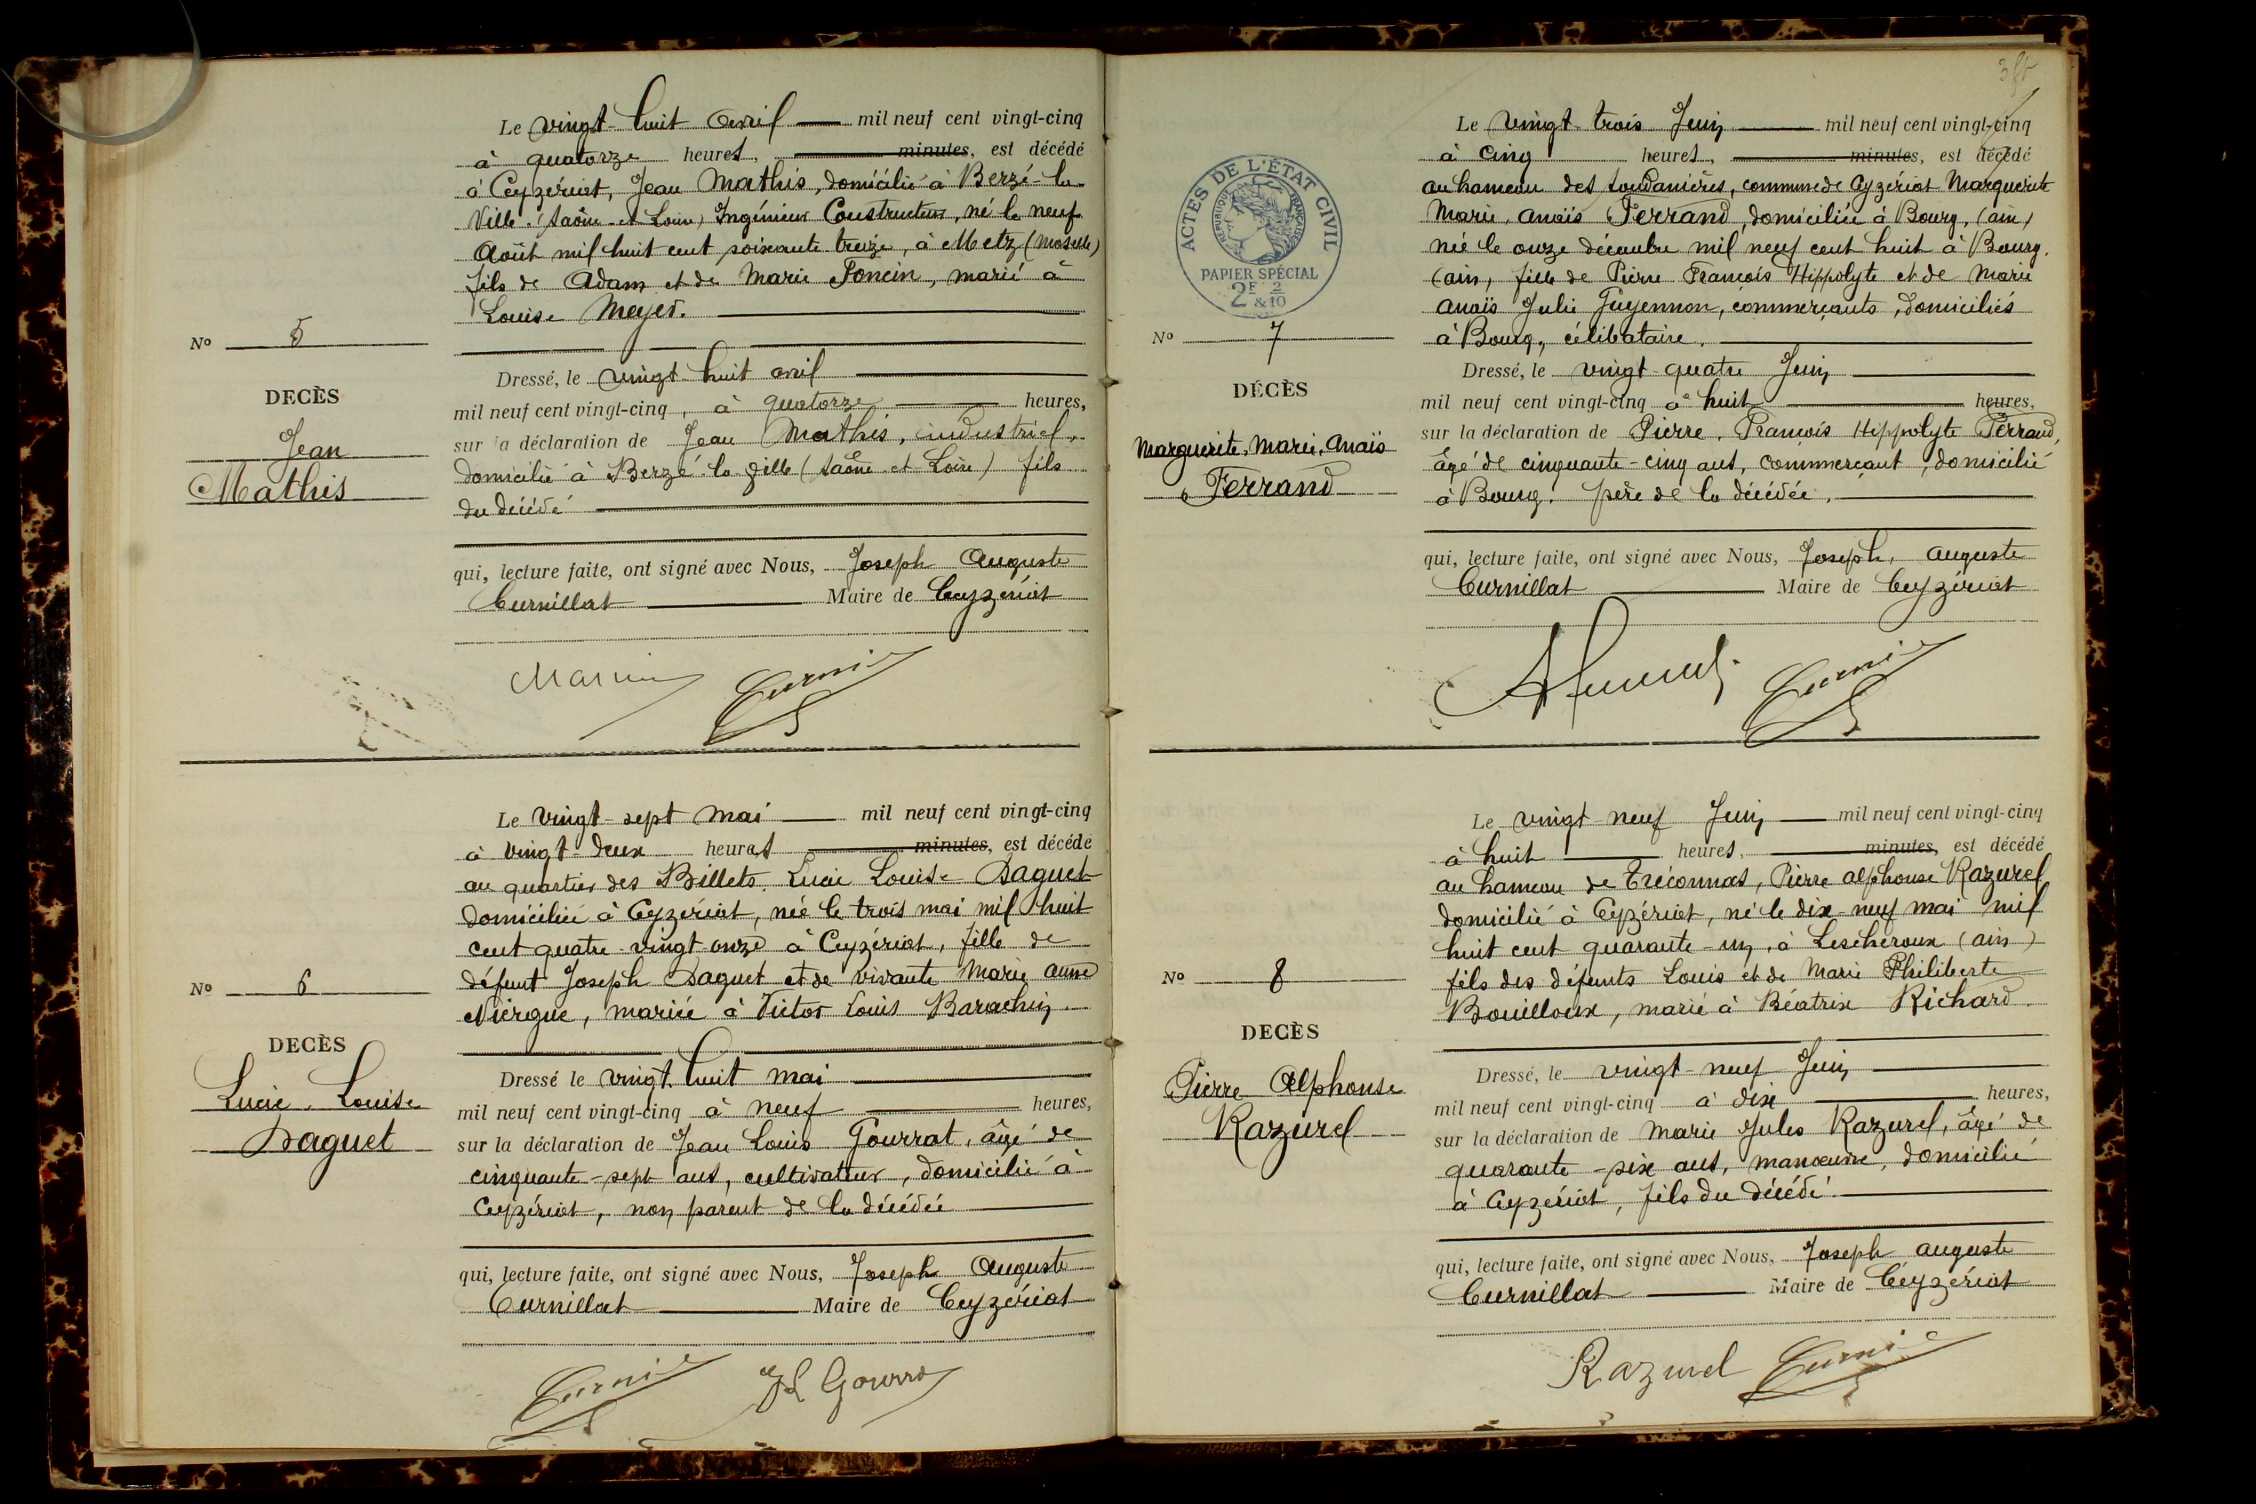 Le vingt-huit avril mil neuf cent vingt-cinq
à quatorze heures, minutes, est décédé
à Ceyzériat, Jean Mathis, domicilié à Berzé-la-
Ville (Saône-et-Loire) Ingénieur Constructeur, né le neuf
Août mil huit cent soixante treize, à Metz (Moselle)
fils de Adam et de Marie Poncin, marié à
Louise Meyer.
No 5
DECÈS
Jean
Mathis
Dressé, le vingt-huit avril
mil neuf cent vingt-cinq, à quatorze heures,
sur la déclaration de Jean Mathis, industriel,
domicilié à Berzé-la-Ville (Saône-et-Loire) fils
du décédé
qui, lecture faite, ont signé avec Nous, Joseph Auguste
Curnillat Maire de Ceyzériat
Le vingt-sept mai mil neuf cent vingt-cinq
à vingt-deux heures minutes, est décédé
au quartier des Billets, Lucie Louise Daguet
domiciliée à Ceyzériat, née le trois mai mil huit
cent quatre-vingt-onze à Ceyzériat, fille de
défunt Joseph Daguet et de vivante Marie Anne
Niergue, mariée à Victor Louis Barachin
No 6
DECÈS
Lucie Louise
Daguet
Dressé le vingt-huit mai
mil neuf cent vingt-cinq à neuf heures,
sur la déclaration de Jean Louis Gourrat, âgé de
cinquante-sept ans, cultivateur, domicilié à
Ceyzériat, non parent de la décédée
qui, lecture faite, ont signé avec Nous, Joseph Auguste
Curnillat Maire de Ceyzériat
JL Gourra
Le vingt-trois Juin mil neuf cent vingt-cinq
à cinq heures, minutes, est décédé
au hameau des Soudanières, commune de Ceyzériat Marguerite
Marie, Anaïs Ferrand, domiciliée à Bourg, (ain)
née le onze décembre mil neuf cent huit à Bourg
(ain), fille de Pierre François Hippolyte et de Marie
Anaïs Julie Guyennon, commerçants, domiciliés
à Bourg, célibataire.
ACTES DE L'ÉTAT CIVIL
RÉPUBLIQUE FRANÇAISE
PAPIER SPÉCIAL
2F & 2/10
No 7
DÉCÈS
Marguerite, Marie, Anaïs
Ferrand
Dressé, le vingt-quatre Juin
mil neuf cent vingt-cinq à huit heures,
sur la déclaration de Pierre, François Hippolyte Ferrand,
âgé de cinquante-cinq ans, commerçant, domicilié
à Bourg, père de la décédée,
qui, lecture faite, ont signé avec Nous, Joseph, Auguste
Curnillat Maire de Ceyzériat
Le vingt-neuf Juin mil neuf cent vingt-cinq
à huit heures, minutes, est décédé
au hameau de Tréconnas, Pierre Alphonse Razurel
domicilié à Ceyzériat, né le dix-neuf mai mil
huit cent quarante-un, à Lescheroux (ain)
fils des défunts Louis et de Marie Philiberte
Bouilloux, marié à Béatrix Richard
No 8
DECÈS
Pierre Alphonse
Razurel
Dressé, le vingt-neuf Juin
mil neuf cent vingt-cinq à dix heures,
sur la déclaration de Marie Jules Razurel, âgé de
quarante-six ans, manœuvre, domicilié
à Ceyzériat, fils du décédé.
qui, lecture faite, ont signé avec Nous, Joseph Auguste
Curnillat Maire de Ceyzériat
Razurel